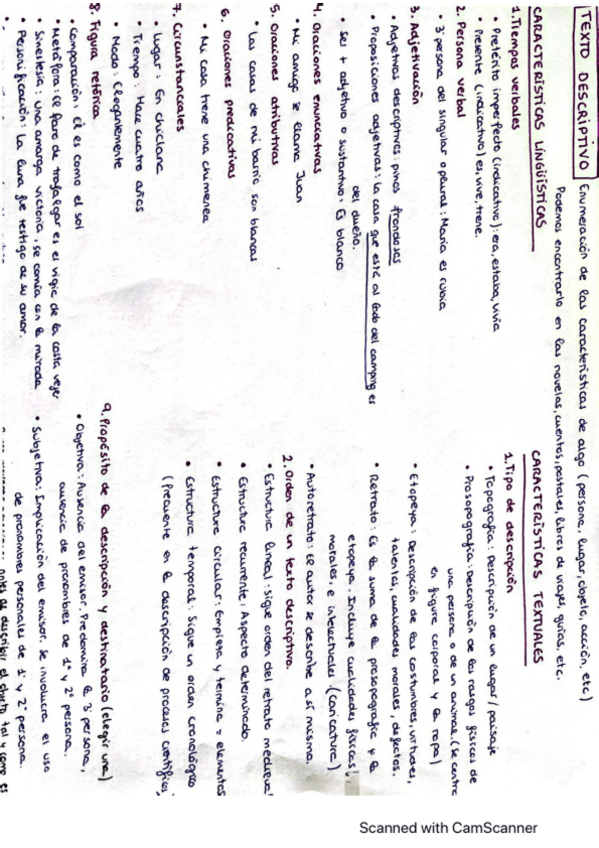 TEXTO DESCRIPTIVO Enumeración de las características de algo (persona, lugar, objeto, acción, etc)
Podemos encontrarlo en las novelas, cuentos, postales, libros de viajes, guías, etc.
CARACTERÍSTICAS LINGÜÍSTICAS
1. Tiempos verbales
• Pretérito imperfecto (indicativo): era, estaba, vivía
• Presente (indicativo) es, vive, tiene.
2. Persona verbal
• 3ª persona del singular o plural: María es rubia
3. Adjetivación
• Adjetivos descriptivos: pinos frondosos
• Proposiciones adjetivas: la casa que está al lado del camping es
del dueño.
• Ser + adjetivo o sustantivo: Es blanco
4. Oraciones enunciativas
• Mi amigo se llama Juan
5. Oraciones atributivas
• Las casas de mi barrio son blancas
6. Oraciones predicativas
• Mi casa tiene una chimenea
7. Circunstanciales
• Lugar: En chiclana
• Tiempo: Hace cuatro años
• Modo: Elegantemente
8. Figura retórica
• Comparación: Él es como el sol
• Metáfora: El faro de Trafalgar es el vigía de la costa vejer
• Sinestesia: una amarga victoria, se comía con la mirada
• Personificación: La luna fue testigo de su amor.
CARACTERÍSTICAS TEXTUALES
1. Tipo de descripción
• Topografía: Descripción de un lugar / paisaje
• Prosopografía: Descripción de los rasgos físicos de
una persona o de un animal. (se centra
en figura corporal y la ropa)
• Etopeya: Descripción de las costumbres, virtudes,
talental, cualidades morales, defectos.
• Retrato: Es la suma de la prosopografía y la
etopeya. Incluye cualidades físicas,
morales, e intelectuales. (caricatura)
• Autoretrato: El autor se describe a sí misma.
2. Orden de un texto descriptivo.
• Estructura lineal: sigue orden del retrato medieval
• Estructura recurrente: Aspecto determinado.
• Estructura circular: Empieza y termina = elementos
• Estructura temporal: Sigue un orden cronológico
(Frecuente en la descripción de procesos científicos)
9. Propósito de la descripción y destinatario (elegir una)
• Objetiva: Ausencia del emisor. Predomina la 3ª persona,
ausencia de pronombres de 1ª y 2ª persona.
• Subjetiva: Implicación del emisor. Se involucra el uso
de pronombres personales de 1ª y 2ª persona.
antes de describir el objeto tal y como es
Scanned with CamScanner